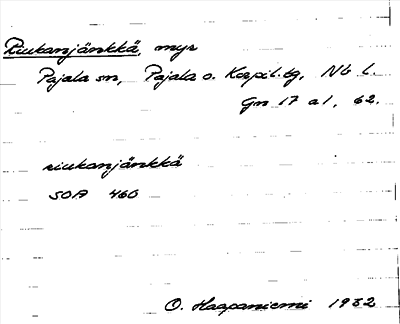 Riukanjänkkä, myr
Pajala sn, Pajala o. Korpil. tg, Nb l.
Gn 17 a1, 62.
riukanjänkkä
SOA 460
O. Haapaniemi 1932